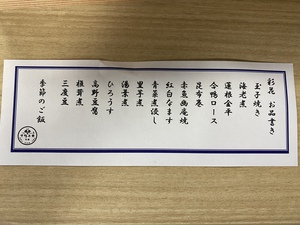 彩花 お品書き
玉子焼き
海老煮
蓮根金平
合鴨ロース
昆布巻
赤魚幽庵焼
紅白なます
青菜煮浸し
里芋煮
湯葉煮
ひろうす
高野豆腐
椎茸煮
三度豆
季節のご飯